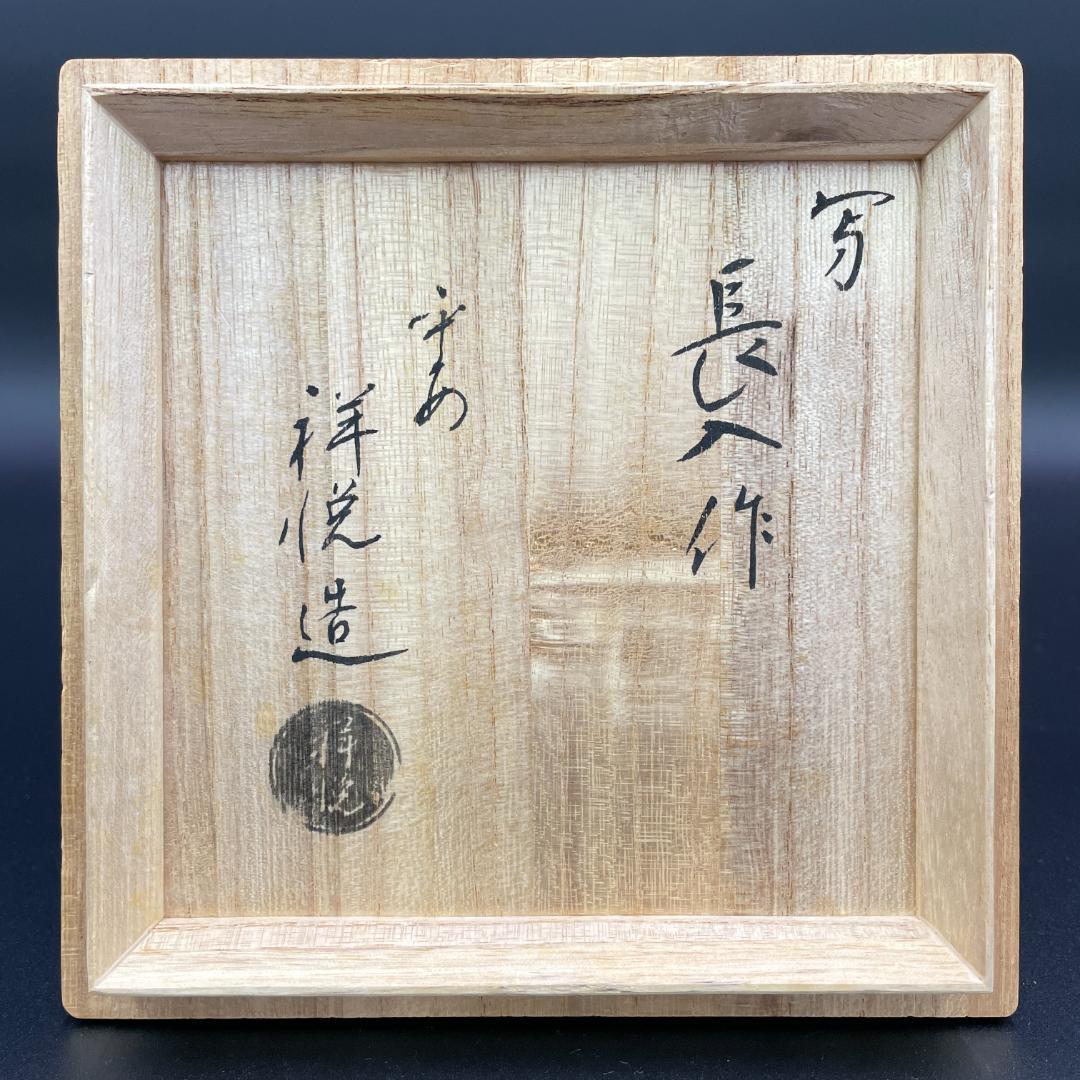 写
長入作
平安
祥悦造
祥悦